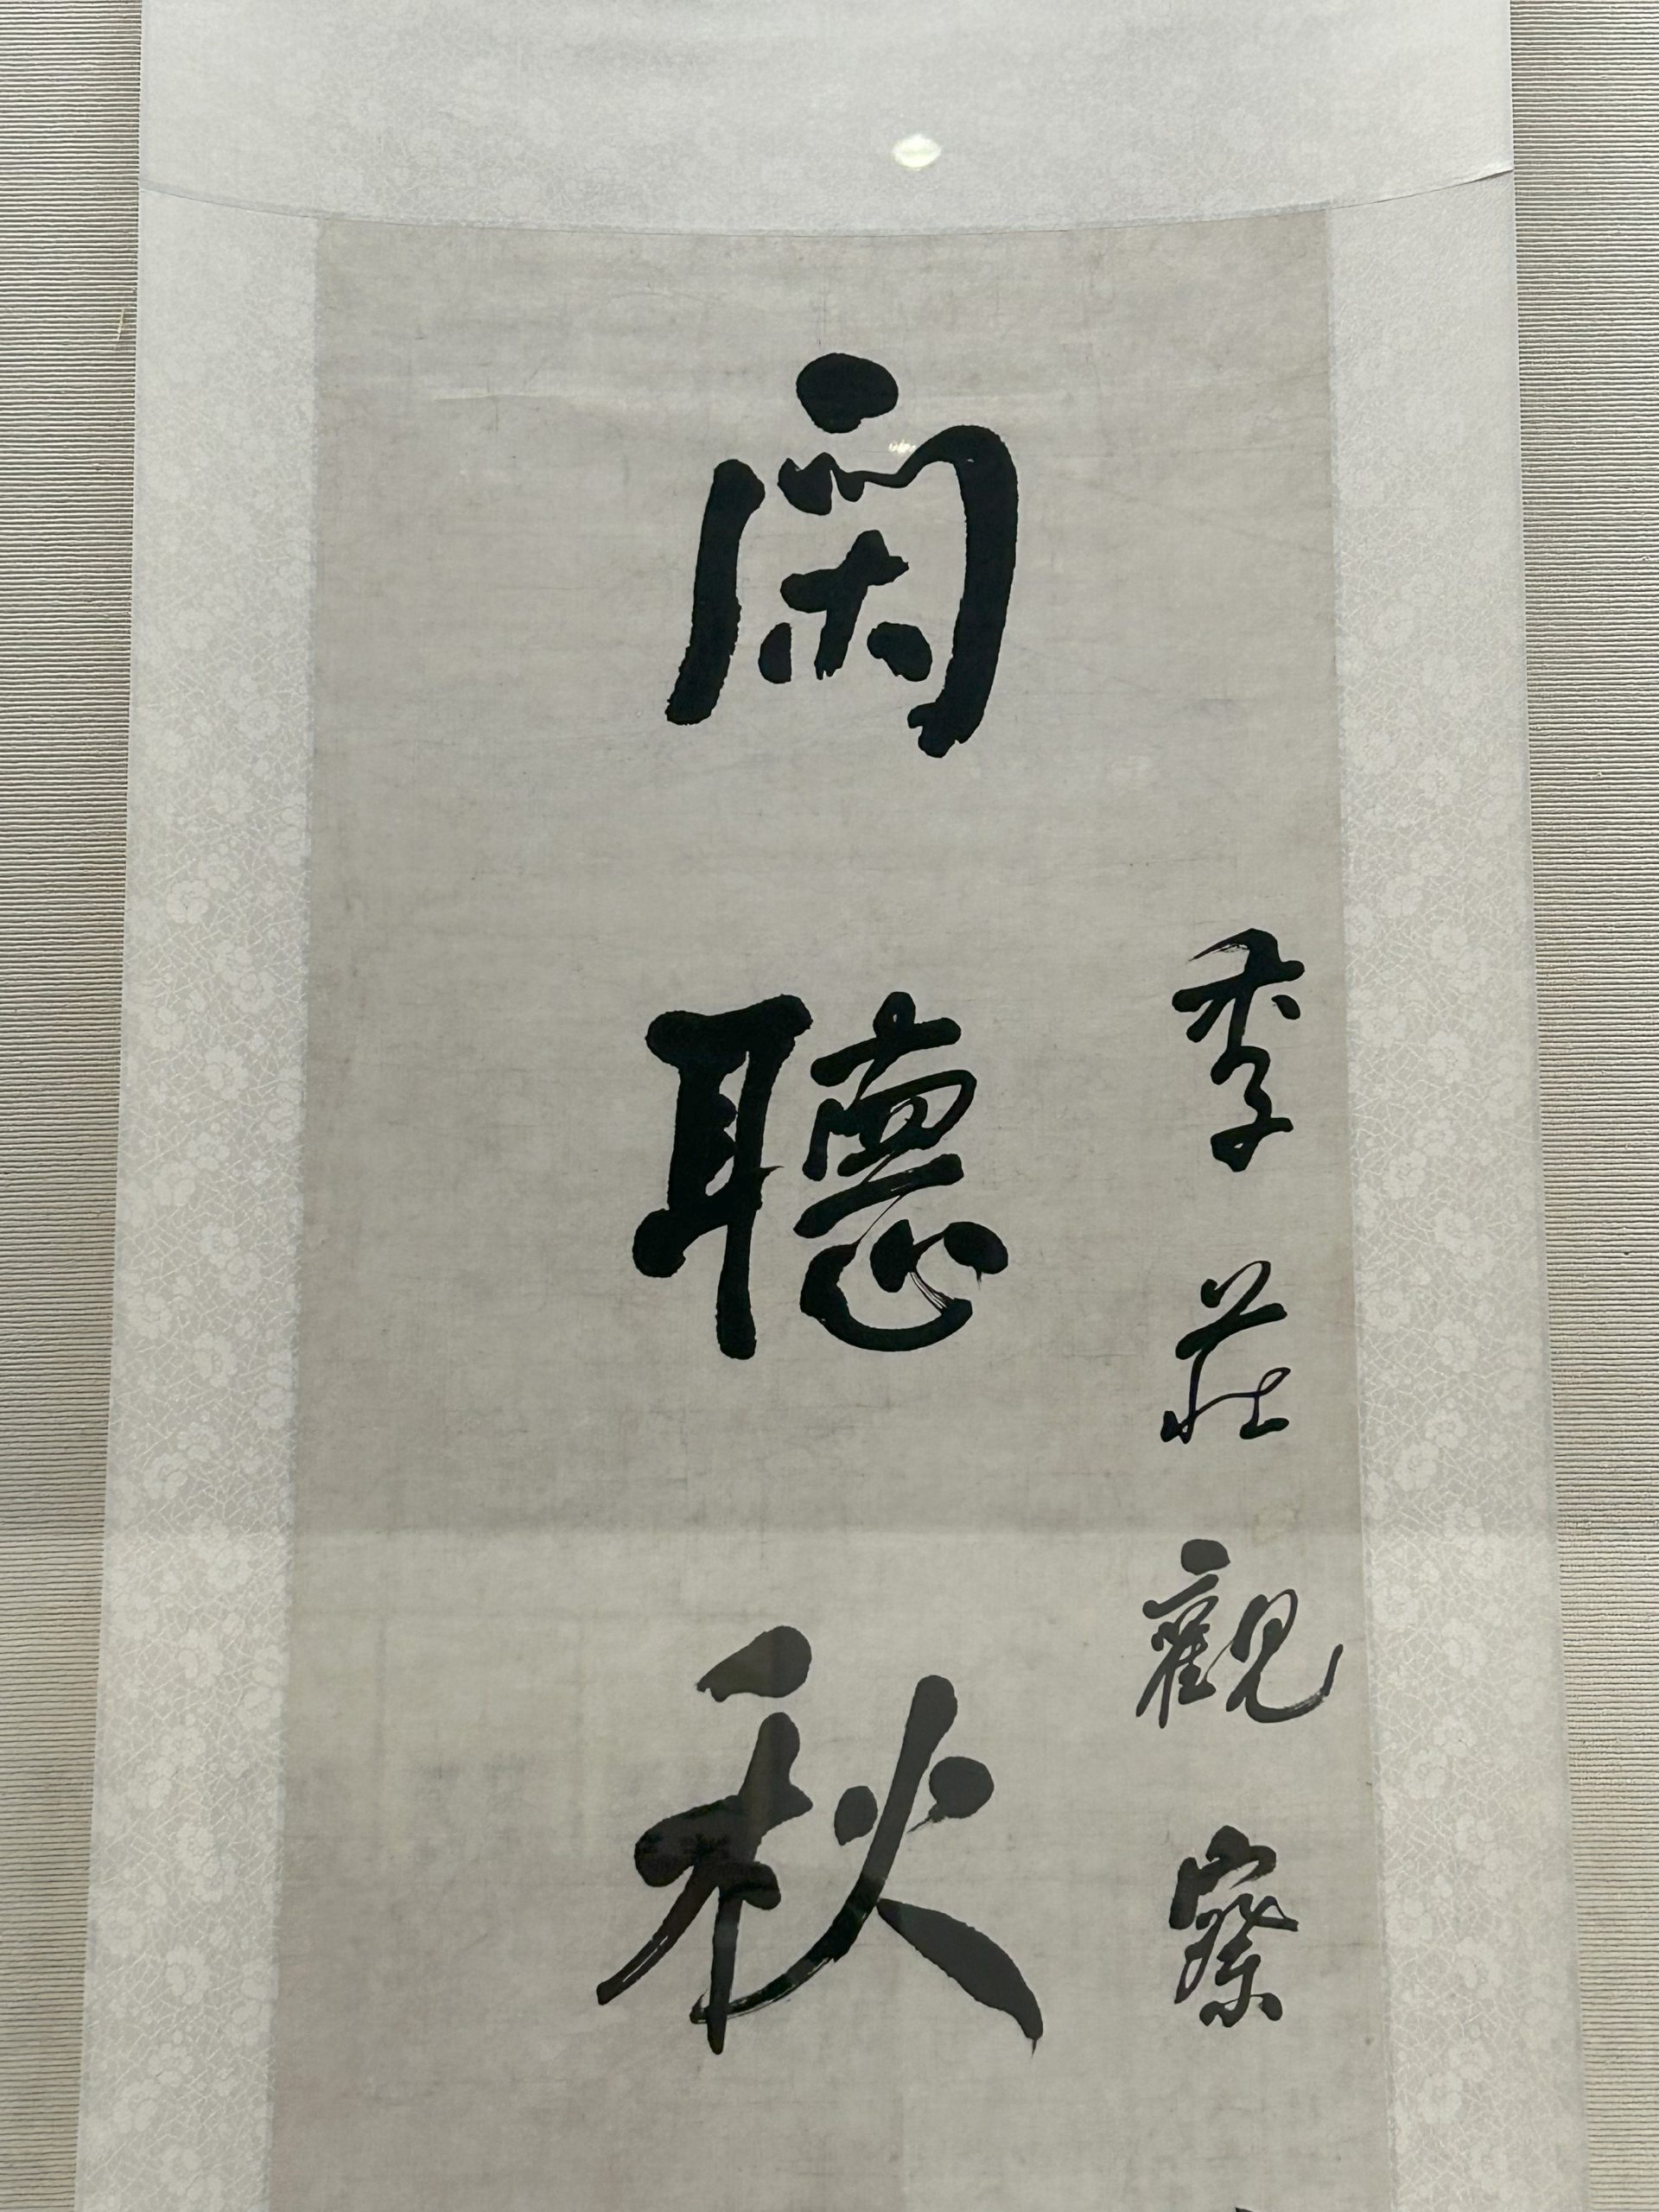 季莊觀察
閑聽秋